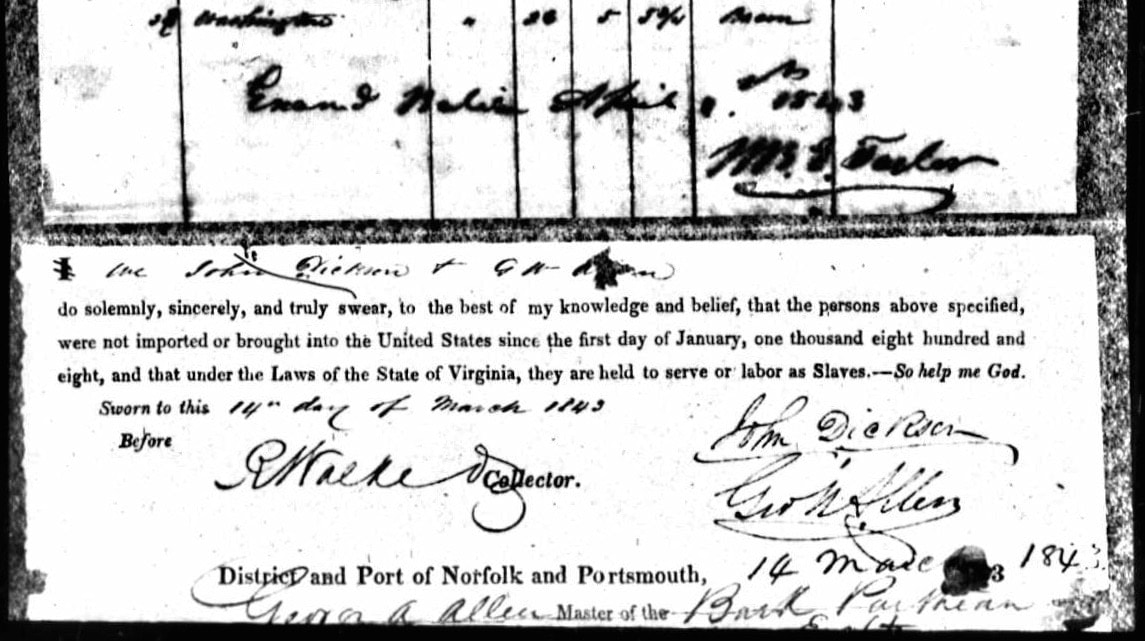 38 Washington " 26 5 5¾ Brown
Exan d Balize April 1843
Wm. E. Taylor
I we John Dickson + G W Allen
do solemnly, sincerely, and truly swear, to the best of my knowledge and belief, that the persons above specified,
were not imported or brought into the United States since the first day of January, one thousand eight hundred and
eight, and that under the Laws of the State of Virginia, they are held to serve or labor as Slaves.—So help me God.
Sworn to this 14th day of March 1843
Before
John Dickson
R Walke D Collector.
Geo W Allen
District and Port of Norfolk and Portsmouth, 14 March 1843
George A Allen Master of the Bark Parthian